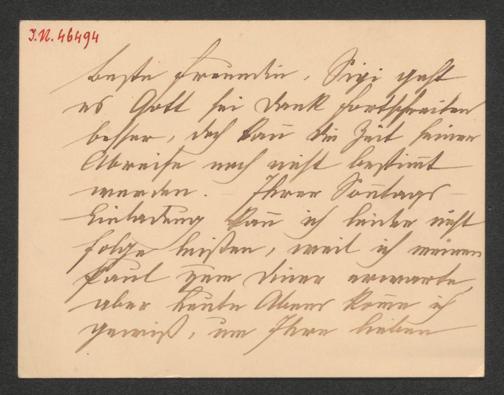 I.N. 46494
beste Freundin, Sigi geht
es Gott sei Dank fortschreitend
besser, doch kan̄ die Zeit seiner
Abreise noch nicht bestim̄t
werden. – Ihrer Son̄tags-
Einladung kan̄ ich leider nicht
folge leisten, weil ich meinen
Paul zum Diner erwarte,
aber heute Abend kom̄e ich
gewiß, um Ihre lieben